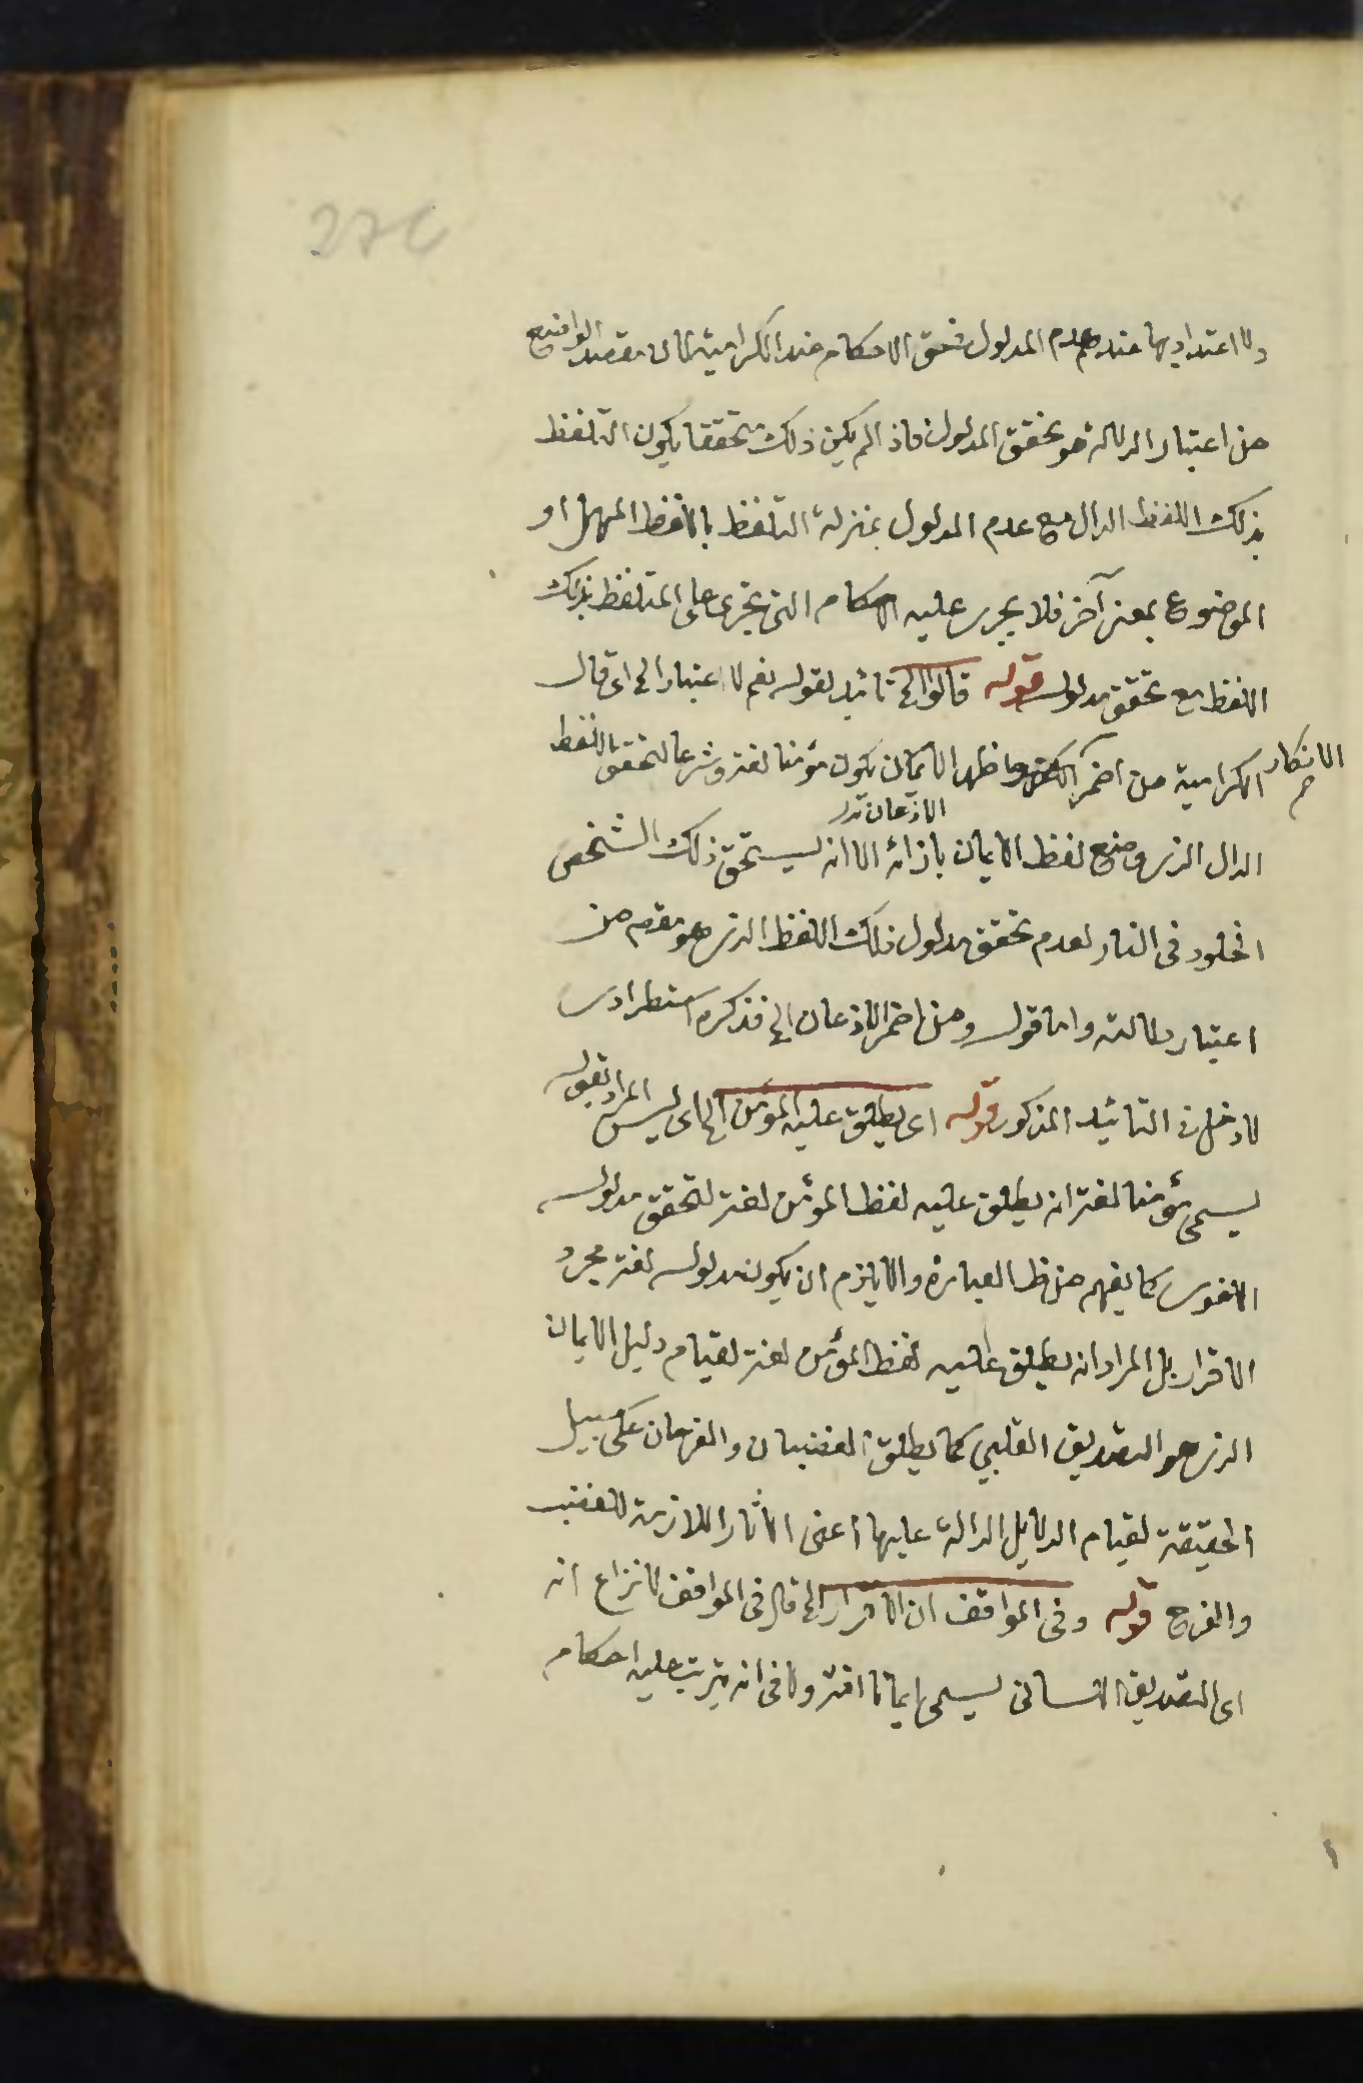 ولا اعتداد بها عند عدم المدلول في حق الاحكام عند الكرامية لان مقصد الواضع
من اعتبار الدلالة هو تحقق المدلول فاذا لم يكن ذلك متحققا يكون التلفظ
بذلك اللفظ الدال مع عدم المدلول بمنزلة التلفظ باللفظ المهمل او
الموضوع بمعنى آخر فلا يجرى عليه الاحكام التى تجرى على المتلفظ بذلك
اللفظ مع تحقق مدلوله قوله قالوا الخ تائيد لقوله نعم لا اعتبار الخ اى قال
الانكار
الكرامية من اضمر الكفر واظهر الايمان يكون مؤمنا لغة وشرعا لتحقق اللفظ
الدال الذى وضع لفظ الايمان بازائه الا انه يستحق ذلك الشخص
الخلود فى النار لعدم تحقق مدلول ذلك اللفظ الذى هو مقصد من
اعتبار دلالته واما قوله ومن اضمر الاذعان الخ فذكره استطرادى
لا دخل فى التائيد المذكور قوله اى يطلق عليه المؤمن الخ اى ليس المراد بقوله
يسمى مؤمنا لغة انه يطلق عليه لفظ المؤمن لغة لتحقق مدلوله
اللغوى كما يفهم من ظ العبارة والا يلزم ان يكون مدلوله لغة مجرد
الاقرار بل المراد انه يطلق عليه لفظ المؤمن لغة لقيام دليل الايمان
الذى هو التصديق القلبي كما يطلق الغضبان والفرحان على سبيل
الحقيقة لقيام الدلايل الدالة عليها اعنى الآثار اللازمة للغضب
والفرح قوله وفى المواقف ان الاقرار الخ قال فى المواقف لا نزاع انه
اى التصديق اللسانى يسمى ايمانا لغة ولا فى انه يترتب عليه احكام